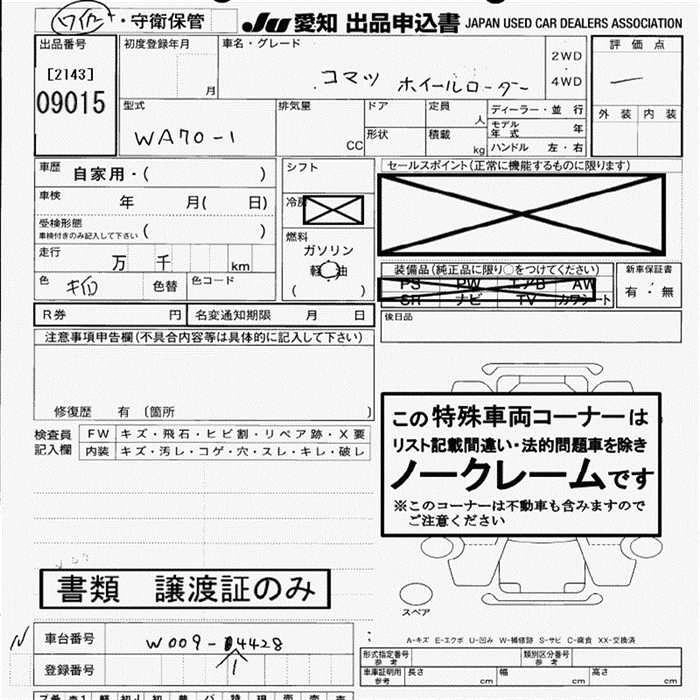 ・守衛保管
JU 愛知 出品申込書 JAPAN USED CAR DEALERS ASSOCIATION
出品番号
[2143]
09015
初度登録年月
月
車名・グレード
コマツ ホイールローダー
2WD
・
4WD
評 価 点
外 装 内 装
型式
WA70-1
排気量
CC
ドア
形状
定員
人
積載
kg
ディーラー・並 行
モデル
年 式
年
ハンドル 左・右
車歴
自家用・( )
車検
年 月( 日)
受検形態
車検付きのみ記入して下さい ( )
走行
万 千 km
色
色替
色コード
シフト
冷房
燃料
ガソリン
軽油
( )
セールスポイント(正常に機能するものに限ります)
装備品(純正品に限り○をつけてください)
PS PW エアB AW
SR ナビ TV カワシート
新車保証書
有・無
後日品
R券 円 名変通知期限 月 日
注意事項申告欄(不具合内容等は具体的に記入して下さい)
修復歴 有 〔箇所 〕
検査員
記入欄
FW キズ・飛石・ヒビ割・リペア跡・X要
内装 キズ・汚レ・コゲ・穴・スレ・キレ・破レ
この特殊車両コーナーは
リスト記載間違い・法的問題車を除き
ノークレームです
※このコーナーは不動車も含みますので
ご注意ください
書類 譲渡証のみ
スペア
A-キズ E-エクボ U-凹み W-補修跡 S-サビ C-腐食 XX-交換済
N 車台番号 W009-14428
登録番号
形式指定番号
参 考
類別区分番号
参 考
車庫証明用
参考
長さ cm 幅 cm 高さ cm